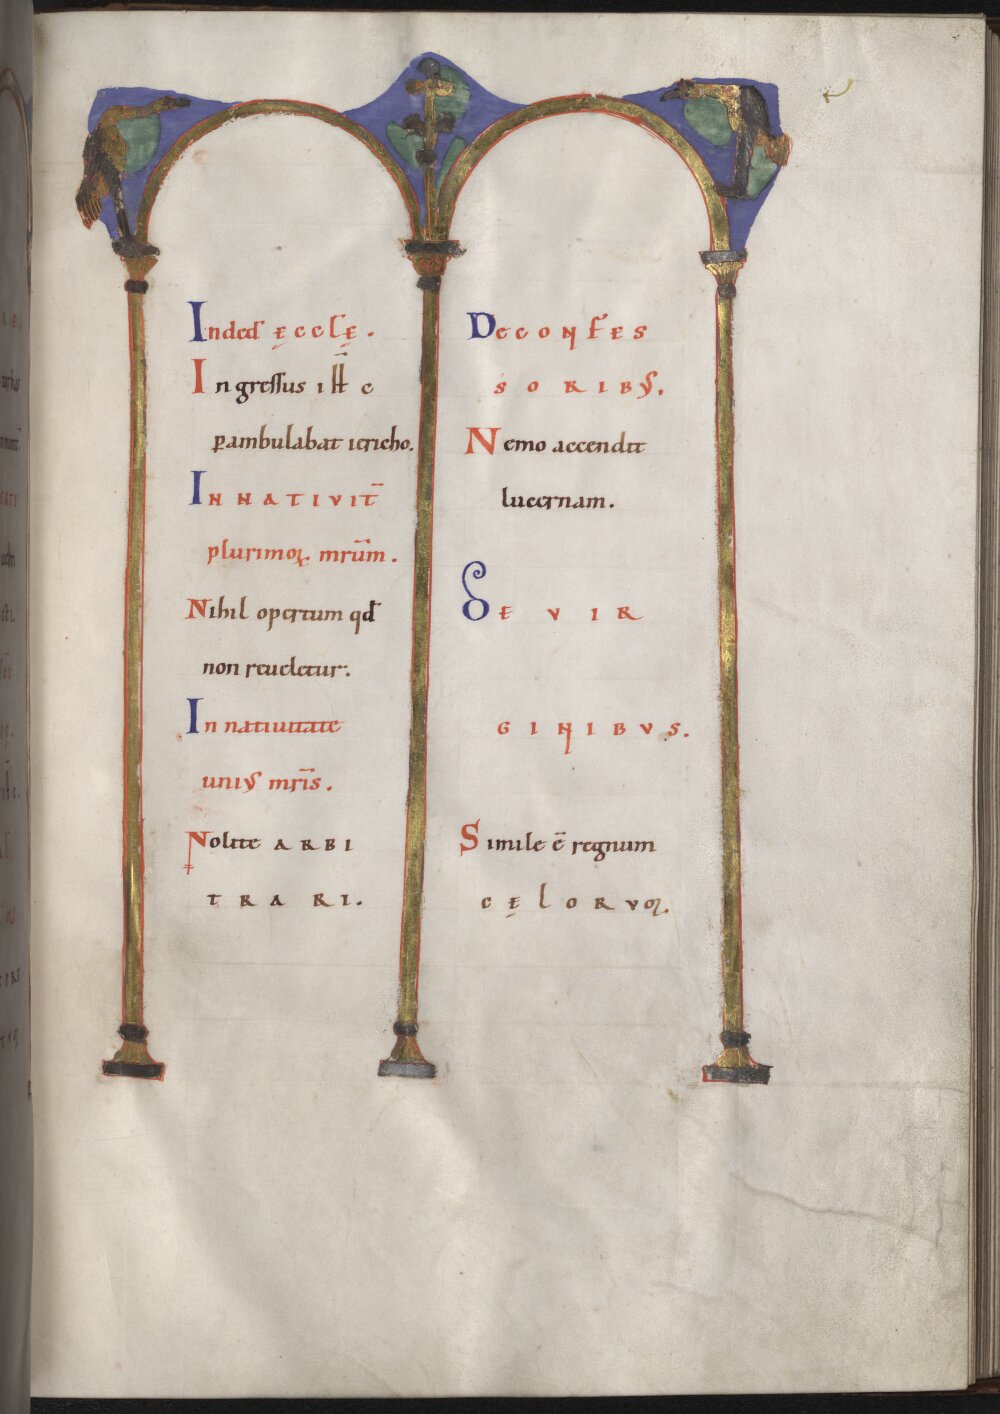 Inded ęcclę.
Ingressus ihc̄ c
ꝑambulabat iericho.
INNATIVIT̄
plurimoꝝ mrū̄m.
Nihil opertum qđ
non reueletur.
In natiuitate
uniꝰ mr̄is.
Nolite ARBI
TRARI.
DeCONFES
SORIBꝰ.
Nemo accendit
lucernam.
DE VIR
GINIBVS.
Simile ē regnum
CĘLORVꝝ.